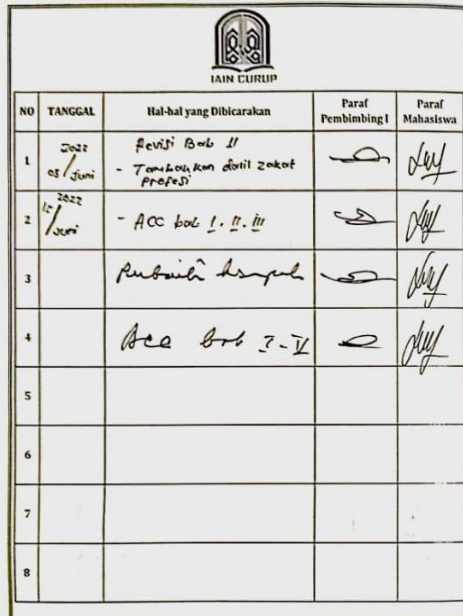 IAIN CURUP
NO TANGGAL Hal-hal yang Dibicarakan Paraf Pembimbing I Paraf Mahasiswa
1 2022 05/Juni Revisi Bab II
- Tambahkan dalil zakat
profesi
2 2022 12/Juni - ACC bab I. II. III
3 Perbaiki
4 Acc bab I-V
5
6
7
8